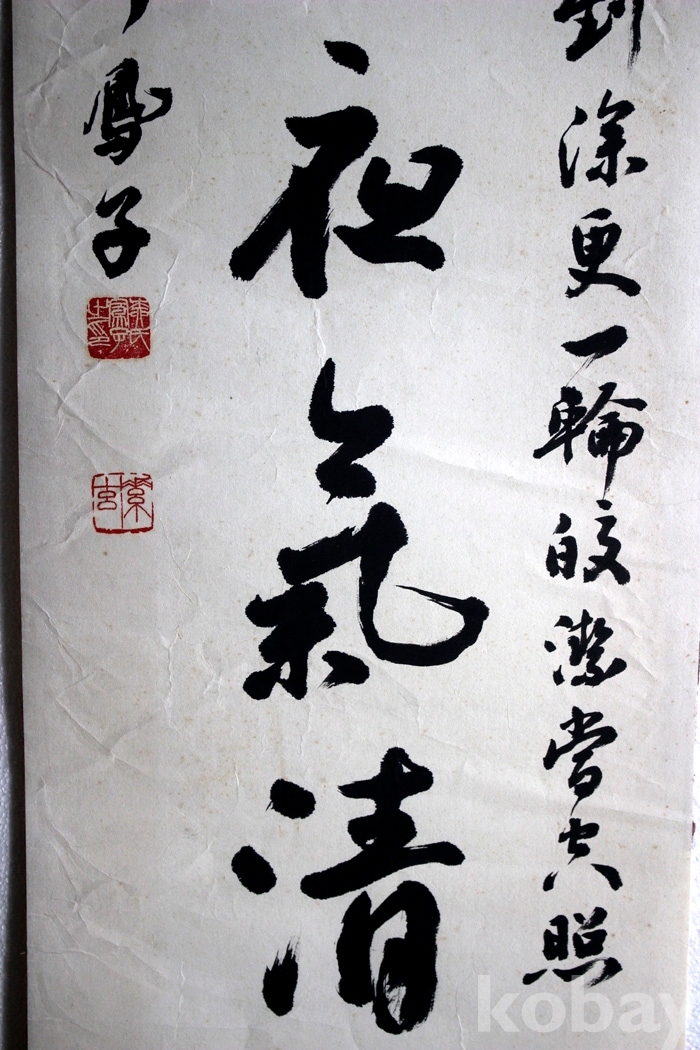 到深更一輪皎潔當空照
亱氣清
鳳子
kobay